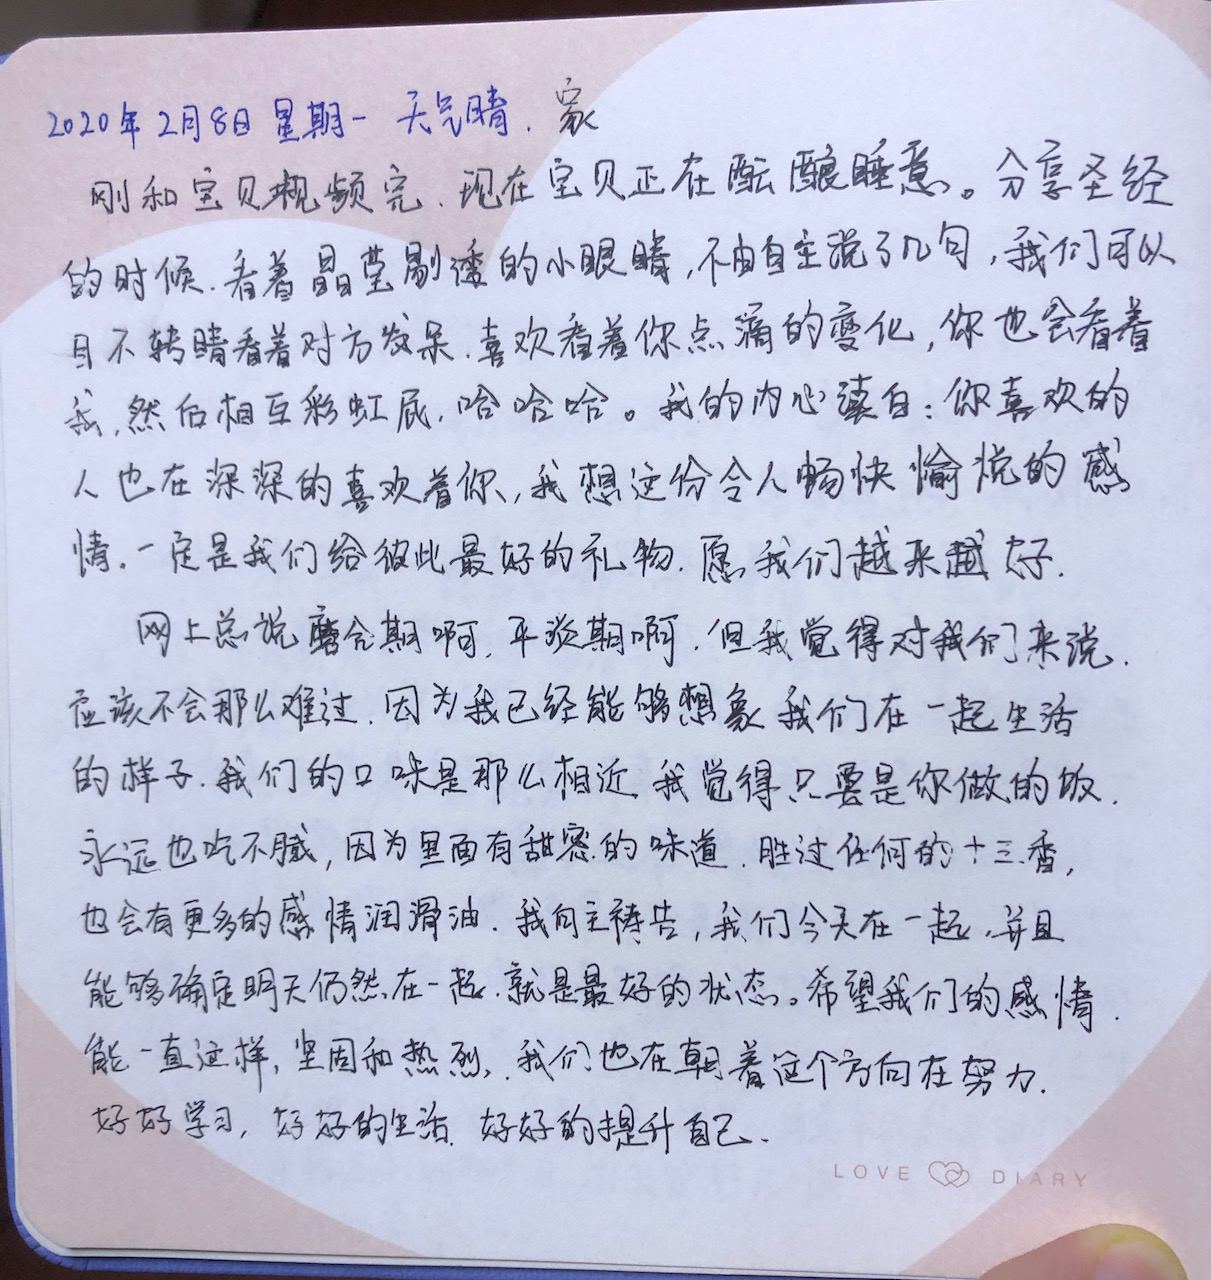 2020年2月8日 星期一 天气晴. 家
刚和宝贝视频完.现在宝贝正在酝酿睡意。分享圣经
的时候.看着晶莹剔透的小眼睛,不由自主说了几句,我们可以
目不转睛看着对方发呆.喜欢看着你点滴的变化,你也会看着
我,然后相互彩虹屁,哈哈哈。我的内心独白:你喜欢的
人也在深深的喜欢着你,我想这份令人畅快愉悦的感
情.一定是我们给彼此最好的礼物.愿我们越来越好.
网上总说磨合期啊,平淡期啊.但我觉得对我们来说.
应该不会那么难过.因为我已经能够想象我们在一起生活
的样子.我们的口味是那么相近 我觉得只要是你做的饭.
永远也吃不腻,因为里面有甜蜜的味道.胜过任何的十三香,
也会有更多的感情润滑油.我向主祷告,我们今天在一起,并且
能够确定明天仍然在一起.就是最好的状态。希望我们的感情.
能一直这样,坚固和热烈,我们也在朝着这个方向在努力.
好好学习,好好的生活.好好的提升自己.
LOVE DIARY